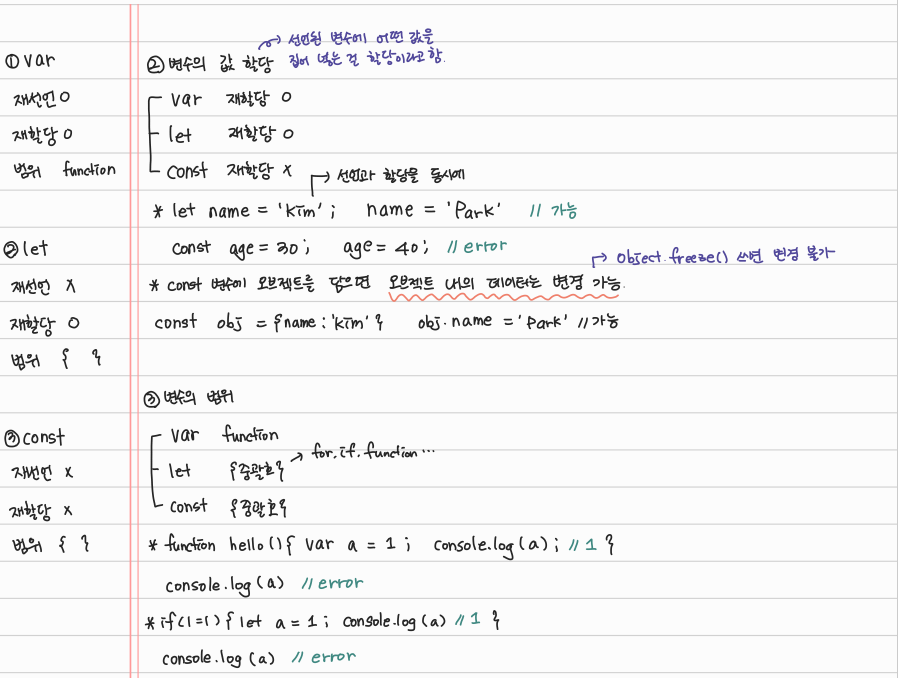 ① var
재선언 O
재할당 O
범위 function
② let
재선언 X
재할당 O
범위 { }
③ const
재선언 x
재할당 x
범위 { }
② 변수의 값 할당
선언된 변수에 어떤 값을
집어 넣는 걸 할당이라고 함.
var 재할당 O
let 재할당 O
const 재할당 X
선언과 할당을 동시에
* let name = 'kim' ; name = 'Park' // 가능
const age = 30 ; age = 40 ; // error
Object.freeze() 쓰면 변경 불가
* const 변수에 오브젝트를 담으면 오브젝트 내의 데이터는 변경 가능.
const obj = {name : 'kim' } obj.name = 'Park' // 가능
③ 변수의 범위
var function
let {중괄호}
for.if.function ...
const {중괄호}
* function hello(){ var a = 1 ; console.log (a) ; // 1 }
console.log (a) // error
* if(1=1) { let a = 1 ; console.log (a) // 1 }
console.log (a) // error